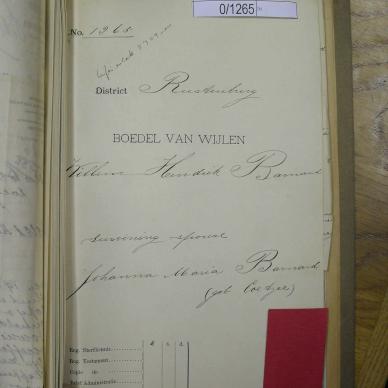 0/1265
No. 1265
District Rustenburg
BOEDEL VAN WIJLEN
Willem Hendrik Barnard
surviving spouse
Johanna Maria Barnard
(geb Coetzee)
£ s. d.
Reg. Sterfkennis
Reg. Testament
Copie do.
Brief Administratie